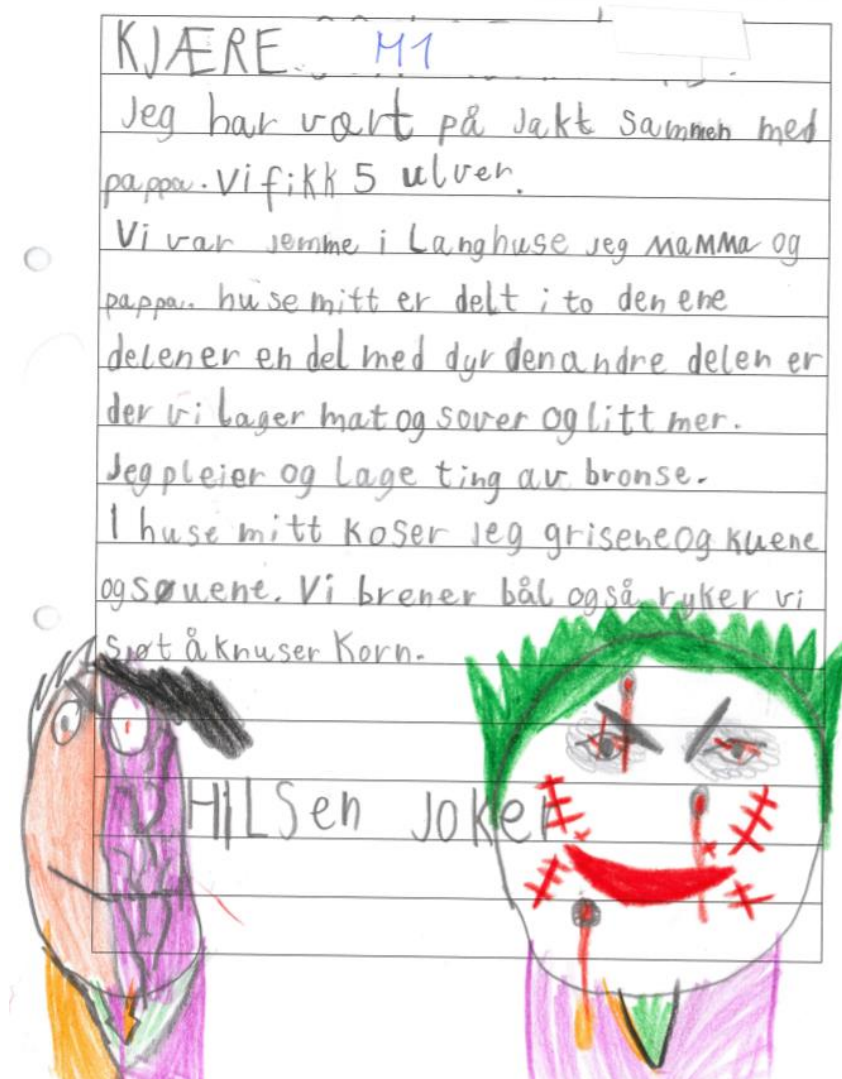 KJÆRE M1
Jeg har vært på Jakt sammen med
pappa. Vi fikk 5 ulver.
Vi var jemme i Langhuse jeg MAMMA og
pappa. huse mitt er delt i to den ene
delen er en del med dyr den andre delen er
der vi lager mat og sover og litt mer.
Jeg pleier og Lage ting av bronse.
I huse mitt koser jeg grisene og kuene
og søuene. Vi brener bål også ryker vi
sjøt å knuser Korn.
HiLSen JOKer